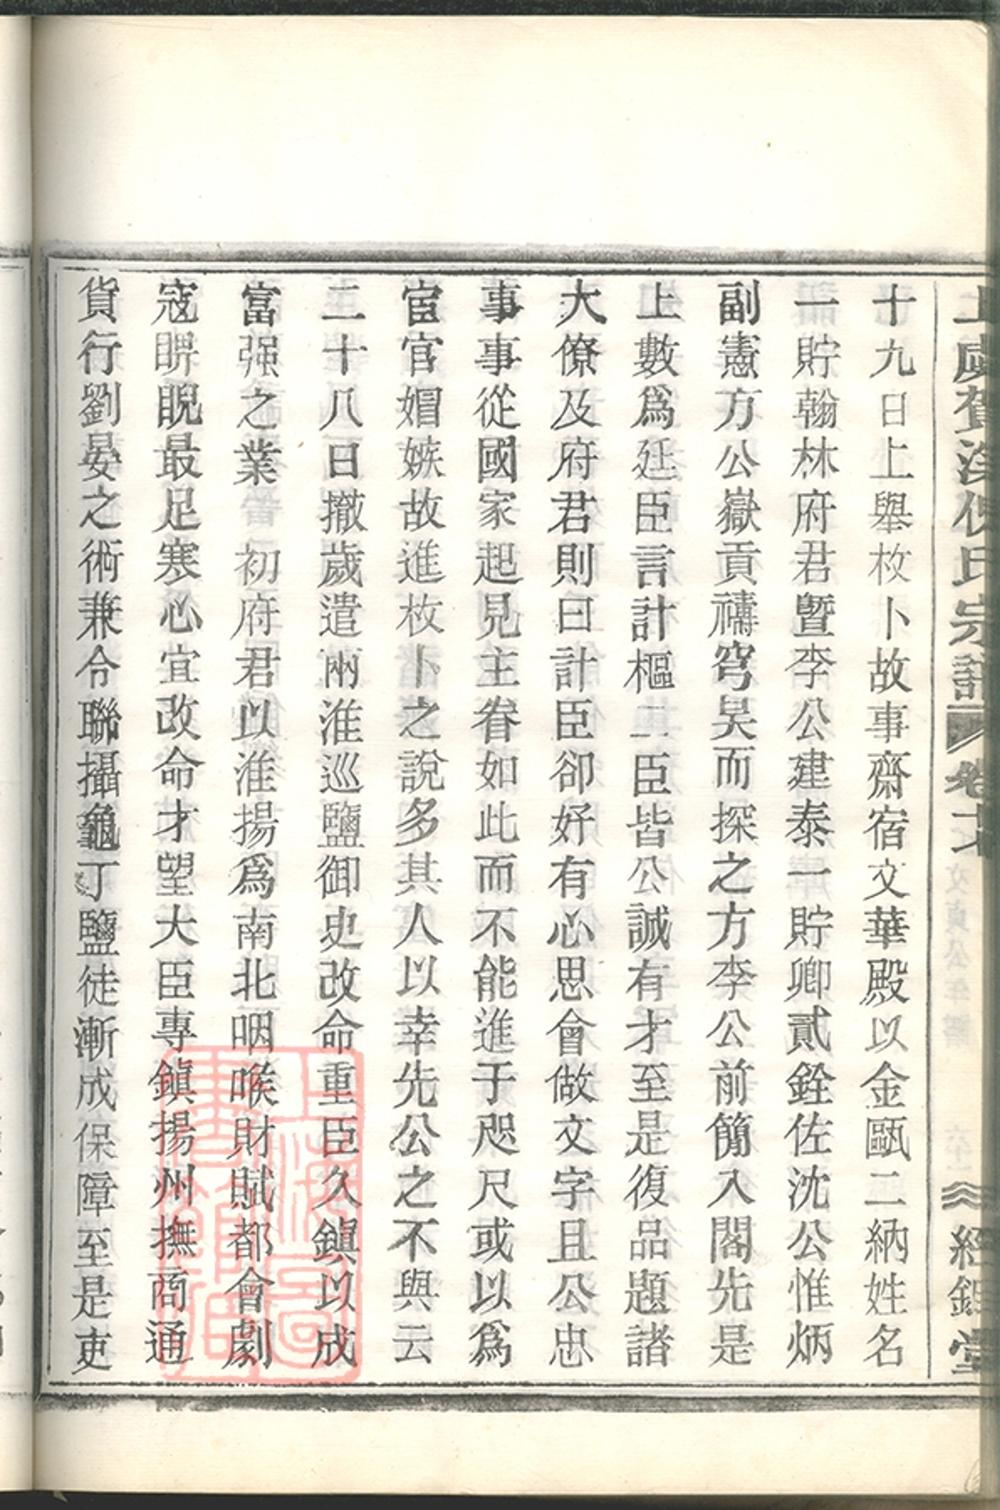 十九日上舉枚卜故事齋宿文華殿以金甌二納姓名
一貯翰林府君暨李公建泰一貯卿貳銓佐沈公惟炳
副憲方公嶽貢禱穹昊而探之方李公前簡入閣先是
上數爲廷臣言計樞二臣皆公誠有才至是復品題諸
大僚及府君則曰計臣卻好有心思會做文字且公忠
事事從國家起見主眷如此而不能進于咫尺或以爲
宦官媢嫉故進枚卜之說多其人以幸先公之不與云
二十八日撤歲遣兩淮巡鹽御史改命重臣久鎮以成
富强之業 初府君以淮揚爲南北咽喉財賦都會劇
寇睤睨最足寒心宜改命才望大臣專鎮揚州撫商通
貨行劉晏之術兼令聯攝竈丁鹽徒漸成保障至是吏
上虞賀溪倪氏宗譜 卷十 經鉏堂
上海圖書館藏